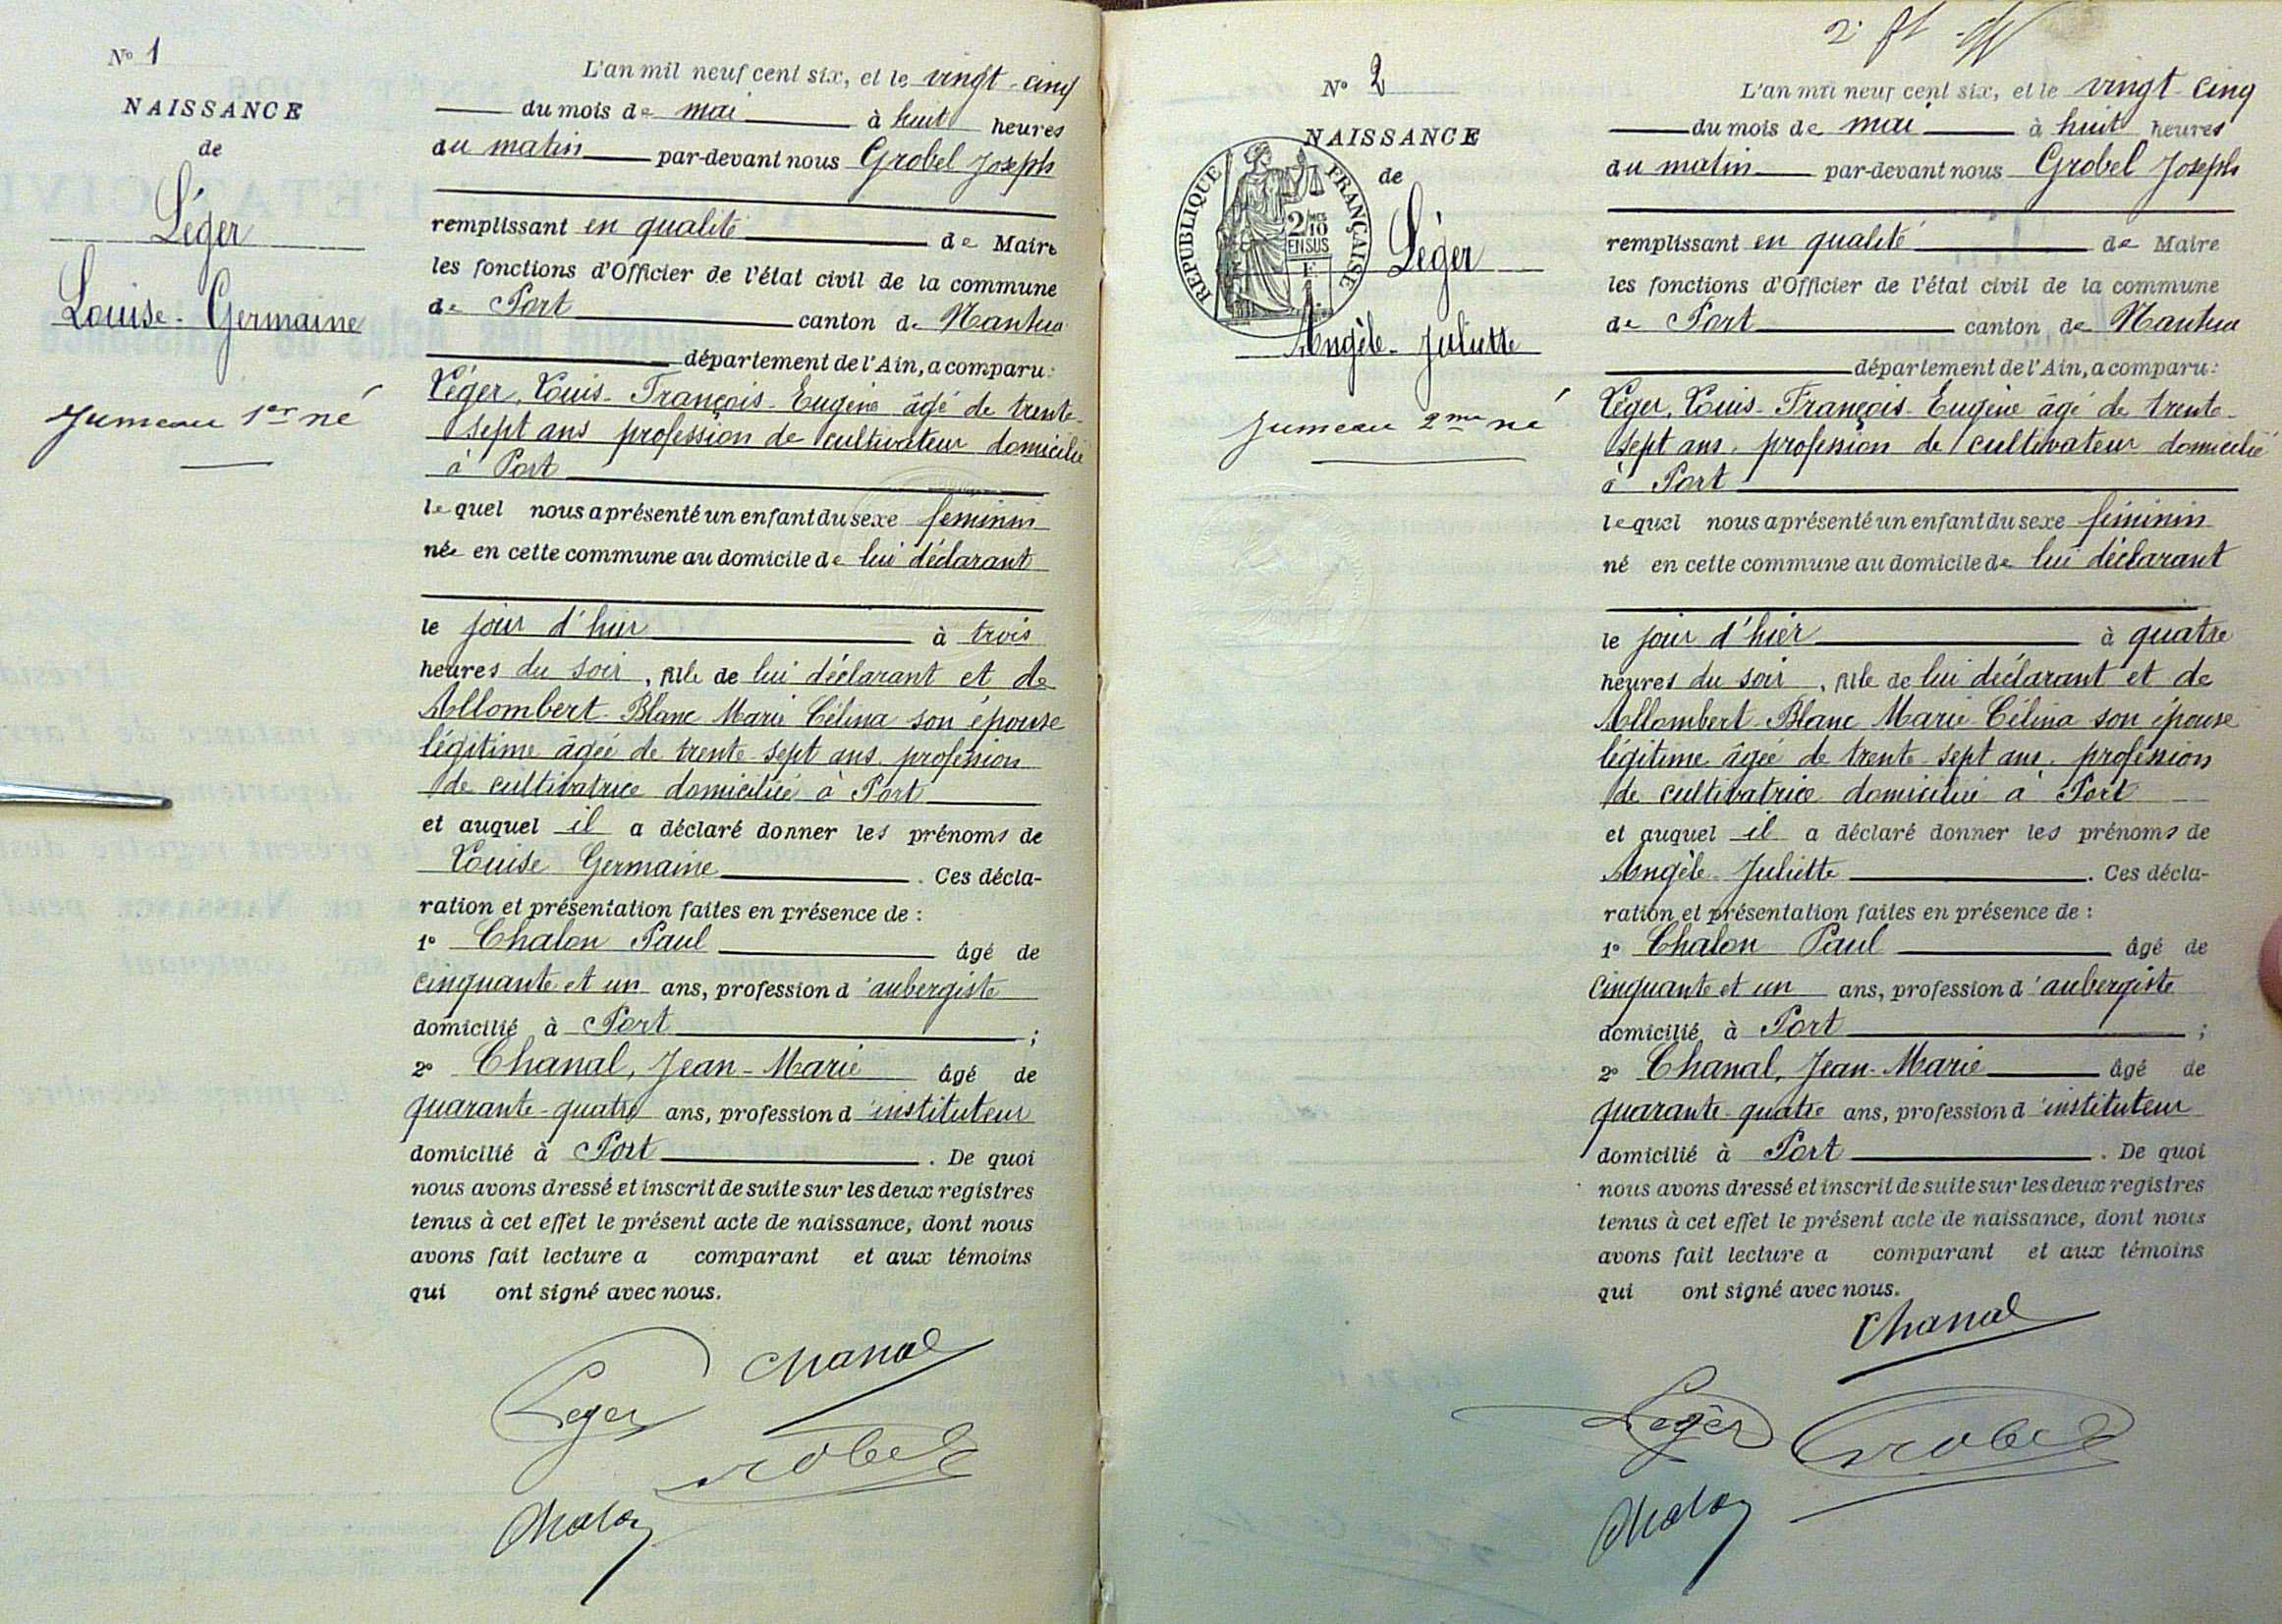 N° 1
NAISSANCE
de
Léger
Louise-Germaine
Jumeau 1er né
L'an mil neuf cent six, et le vingt-cinq
du mois de mai à huit heures
du matin par-devant nous Grobel Joseph
remplissant en qualité de Maire
les fonctions d'Officier de l'état civil de la commune
de Port canton de Nantua
département de l'Ain, a comparu:
Léger, Louis-François-Eugène âgé de trente-
sept ans profession de cultivateur domicilié
à Port
lequel nous a présenté un enfant du sexe féminin
née en cette commune au domicile de lui déclarant
le jour d'hier à trois
heures du soir, fille de lui déclarant et de
Allombert-Blanc Marie Célina son épouse
légitime âgée de trente-sept ans, profession
de cultivatrice domiciliée à Port
et auquel il a déclaré donner les prénoms de
Louise Germaine. Ces décla-
ration et présentation faites en présence de :
1° Chalon Paul âgé de
cinquante et un ans, profession d'aubergiste
domicilié à Port ;
2° Chanal, Jean-Marie âgé de
quarante-quatre ans, profession d'instituteur
domicilié à Port. De quoi
nous avons dressé et inscrit de suite sur les deux registres
tenus à cet effet le présent acte de naissance, dont nous
avons fait lecture a comparant et aux témoins
qui ont signé avec nous.
Chanal
Leger
Grobel
Chalon
N° 2
NAISSANCE
de
RÉPUBLIQUE FRANÇAISE
2/10 MES
EN SUS
Léger
Angèle-Juliette
Jumeau 2me né
L'an mil neuf cent six, et le vingt-cinq
du mois de mai à huit heures
du matin par-devant nous Grobel Joseph
remplissant en qualité de Maire
les fonctions d'Officier de l'état civil de la commune
de Port canton de Nantua
département de l'Ain, a comparu:
Léger, Louis-François-Eugène âgé de trente-
sept ans, profession de cultivateur domicilié
à Port
lequel nous a présenté un enfant du sexe féminin
né en cette commune au domicile de lui déclarant
le jour d'hier à quatre
heures du soir, fille de lui déclarant et de
Allombert-Blanc Marie Célina son épouse
légitime âgée de trente-sept ans, profession
de cultivatrice domiciliée à Port
et auquel il a déclaré donner les prénoms de
Angèle-Juliette. Ces décla-
ration et présentation faites en présence de :
1° Chalon Paul âgé de
cinquante et un ans, profession d'aubergiste
domicilié à Port ;
2° Chanal, Jean-Marie âgé de
quarante-quatre ans, profession d'instituteur
domicilié à Port. De quoi
nous avons dressé et inscrit de suite sur les deux registres
tenus à cet effet le présent acte de naissance, dont nous
avons fait lecture a comparant et aux témoins
qui ont signé avec nous.
Chanal
Leger
Grobel
Chalon